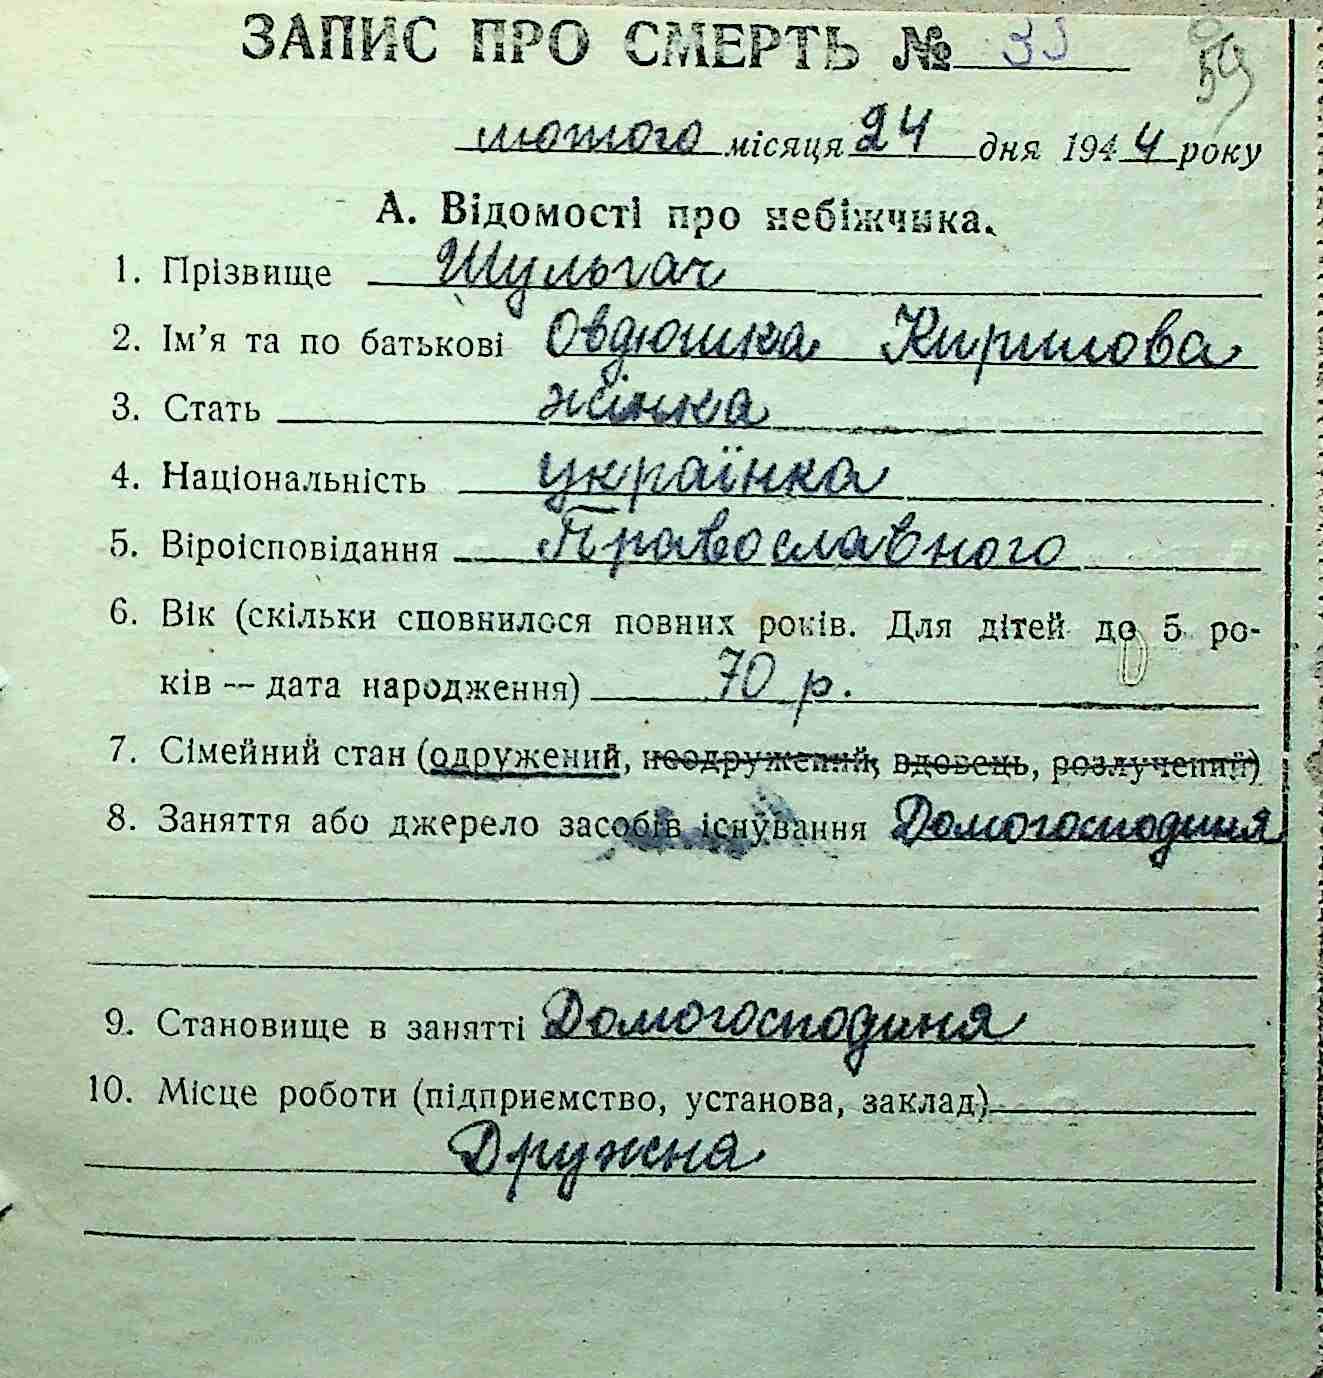 ЗАПИС ПРО СМЕРТЬ № 33
59
лютого місяця 24 дня 1944 року
А. Відомості про небіжчика.
1. Прізвище Шульгач
2. Ім’я та по батькові Овдюшка Кирилова
3. Стать жінка
4. Національність українка
5. Віроісповідання Православного
6. Вік (скільки сповнилося повних років. Для дітей до 5 ро-
ків — дата народження) 70 р.
7. Сімейний стан (одружений, неодружений, вдовець, розлучений)
8. Заняття або джерело засобів існування Домогосподиня
9. Становище в занятті Домогосподиня
10. Місце роботи (підприємство, установа, заклад)
Дружна